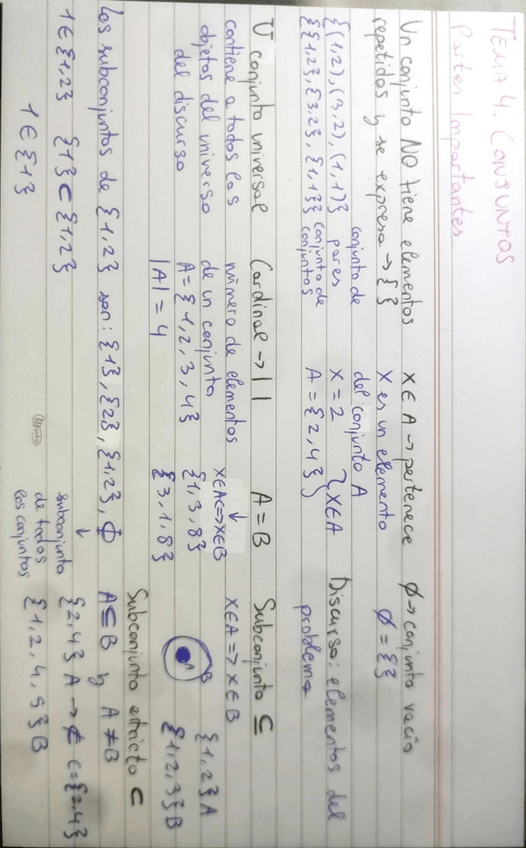 TEMA 4. CONJUNTOS
Partes Importantes
Un conjunto NO tiene elementos
repetidos y se expresa → { }
{(1,2), (3,2), (1,1)} conjunto de pares
{{1,2}, {3,2}, {1,1}} conjunto de conjuntos
x ∈ A → pertenece
x es un elemento
del conjunto A
x = 2
A = {2,4} } x ∈ A
Ø → conjunto vacío
Ø = { }
Discurso: elementos del
problema
U conjunto universal
contiene a todos los
objetos del universo
del discurso
Cardinal → | |
número de elementos
de un conjunto
A = {-1, 2, 3, 4}
|A| = 4
A = B
↓
x∈A<=>x∈B
{1,3,8}
{3,1,8}
Subconjunto ⊆
x∈A => x∈B
A B
{1,2} A
{1,2,3} B
Los subconjuntos de {1,2} son: {1}, {2}, {1,2}, Ø
↓
subconjunto
de todos
los conjuntos
1 ∈ {1,2} {1} ⊂ {1,2}
1 ∈ {1}
Subconjunto estricto ⊂
A ⊆ B y A ≠ B
{2,4} A → ⊄ C={2,4}
{1, 2, 4, 5} B